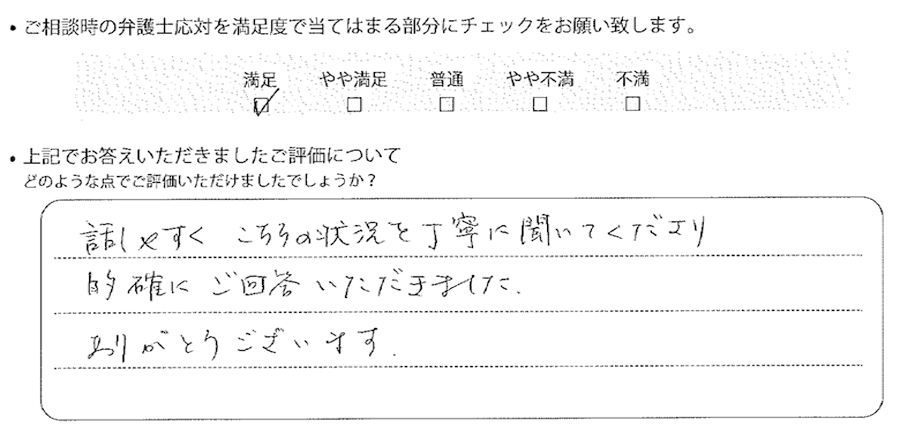 • ご相談時の弁護士応対を満足度で当てはまる部分にチェックをお願い致します。
満足 やや満足 普通 やや不満 不満
☑ □ □ □ □
• 上記でお答えいただきましたご評価について
どのような点でご評価いただけましたでしょうか？
話しやすく こちらの状況を丁寧に聞いてくださり
的確に ご回答いただきました.
ありがとうございます.